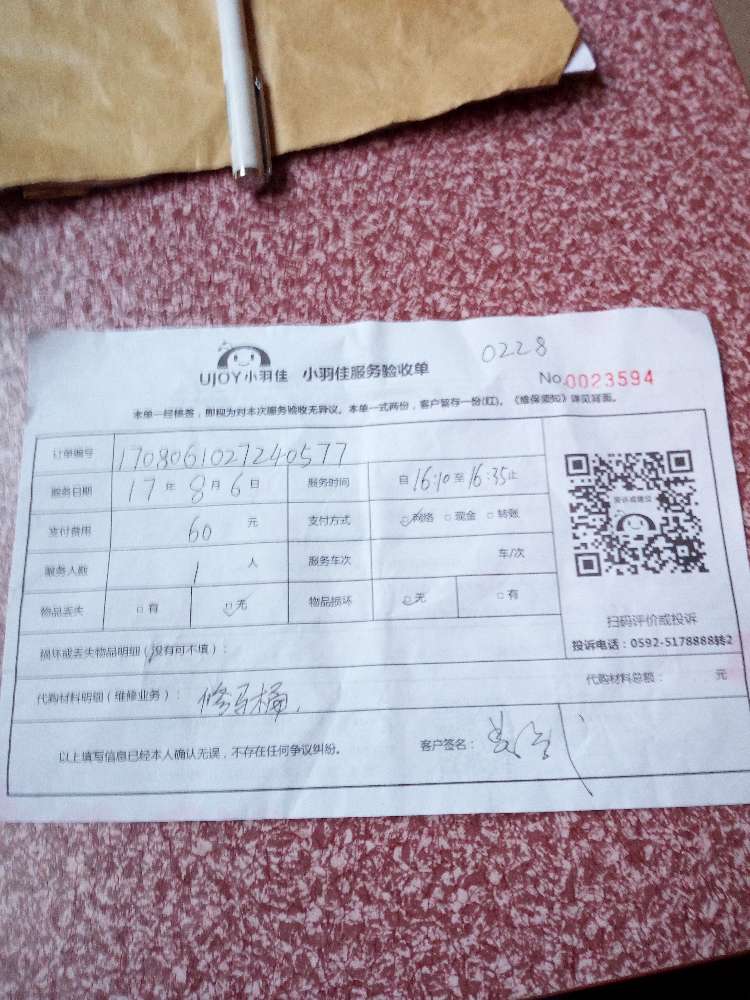 0228
UJOY小羽佳 小羽佳服务验收单 No.0023594
本单一经接签，即视为对本次服务验收无异议。本单一式两份，客户暂存一份(红)。《维保须知》详见背面。
订单编号 1708061027240577
服务日期 17年8月6日 服务时间 自16:10至16:35止
支付费用 60元 支付方式 网络 现金 转账
服务人数 1人 服务车次 车/次
物品丢失 有 无 物品损坏 无 有
投诉或建议
扫码评价或投诉
投诉电话：0592-5178888转2
损坏或丢失物品明细（没有可不填）：
代购材料明细（维修业务）：修马桶. 代购材料总额： 元
以上填写信息已经本人确认无误，不存在任何争议纠纷。 客户签名：